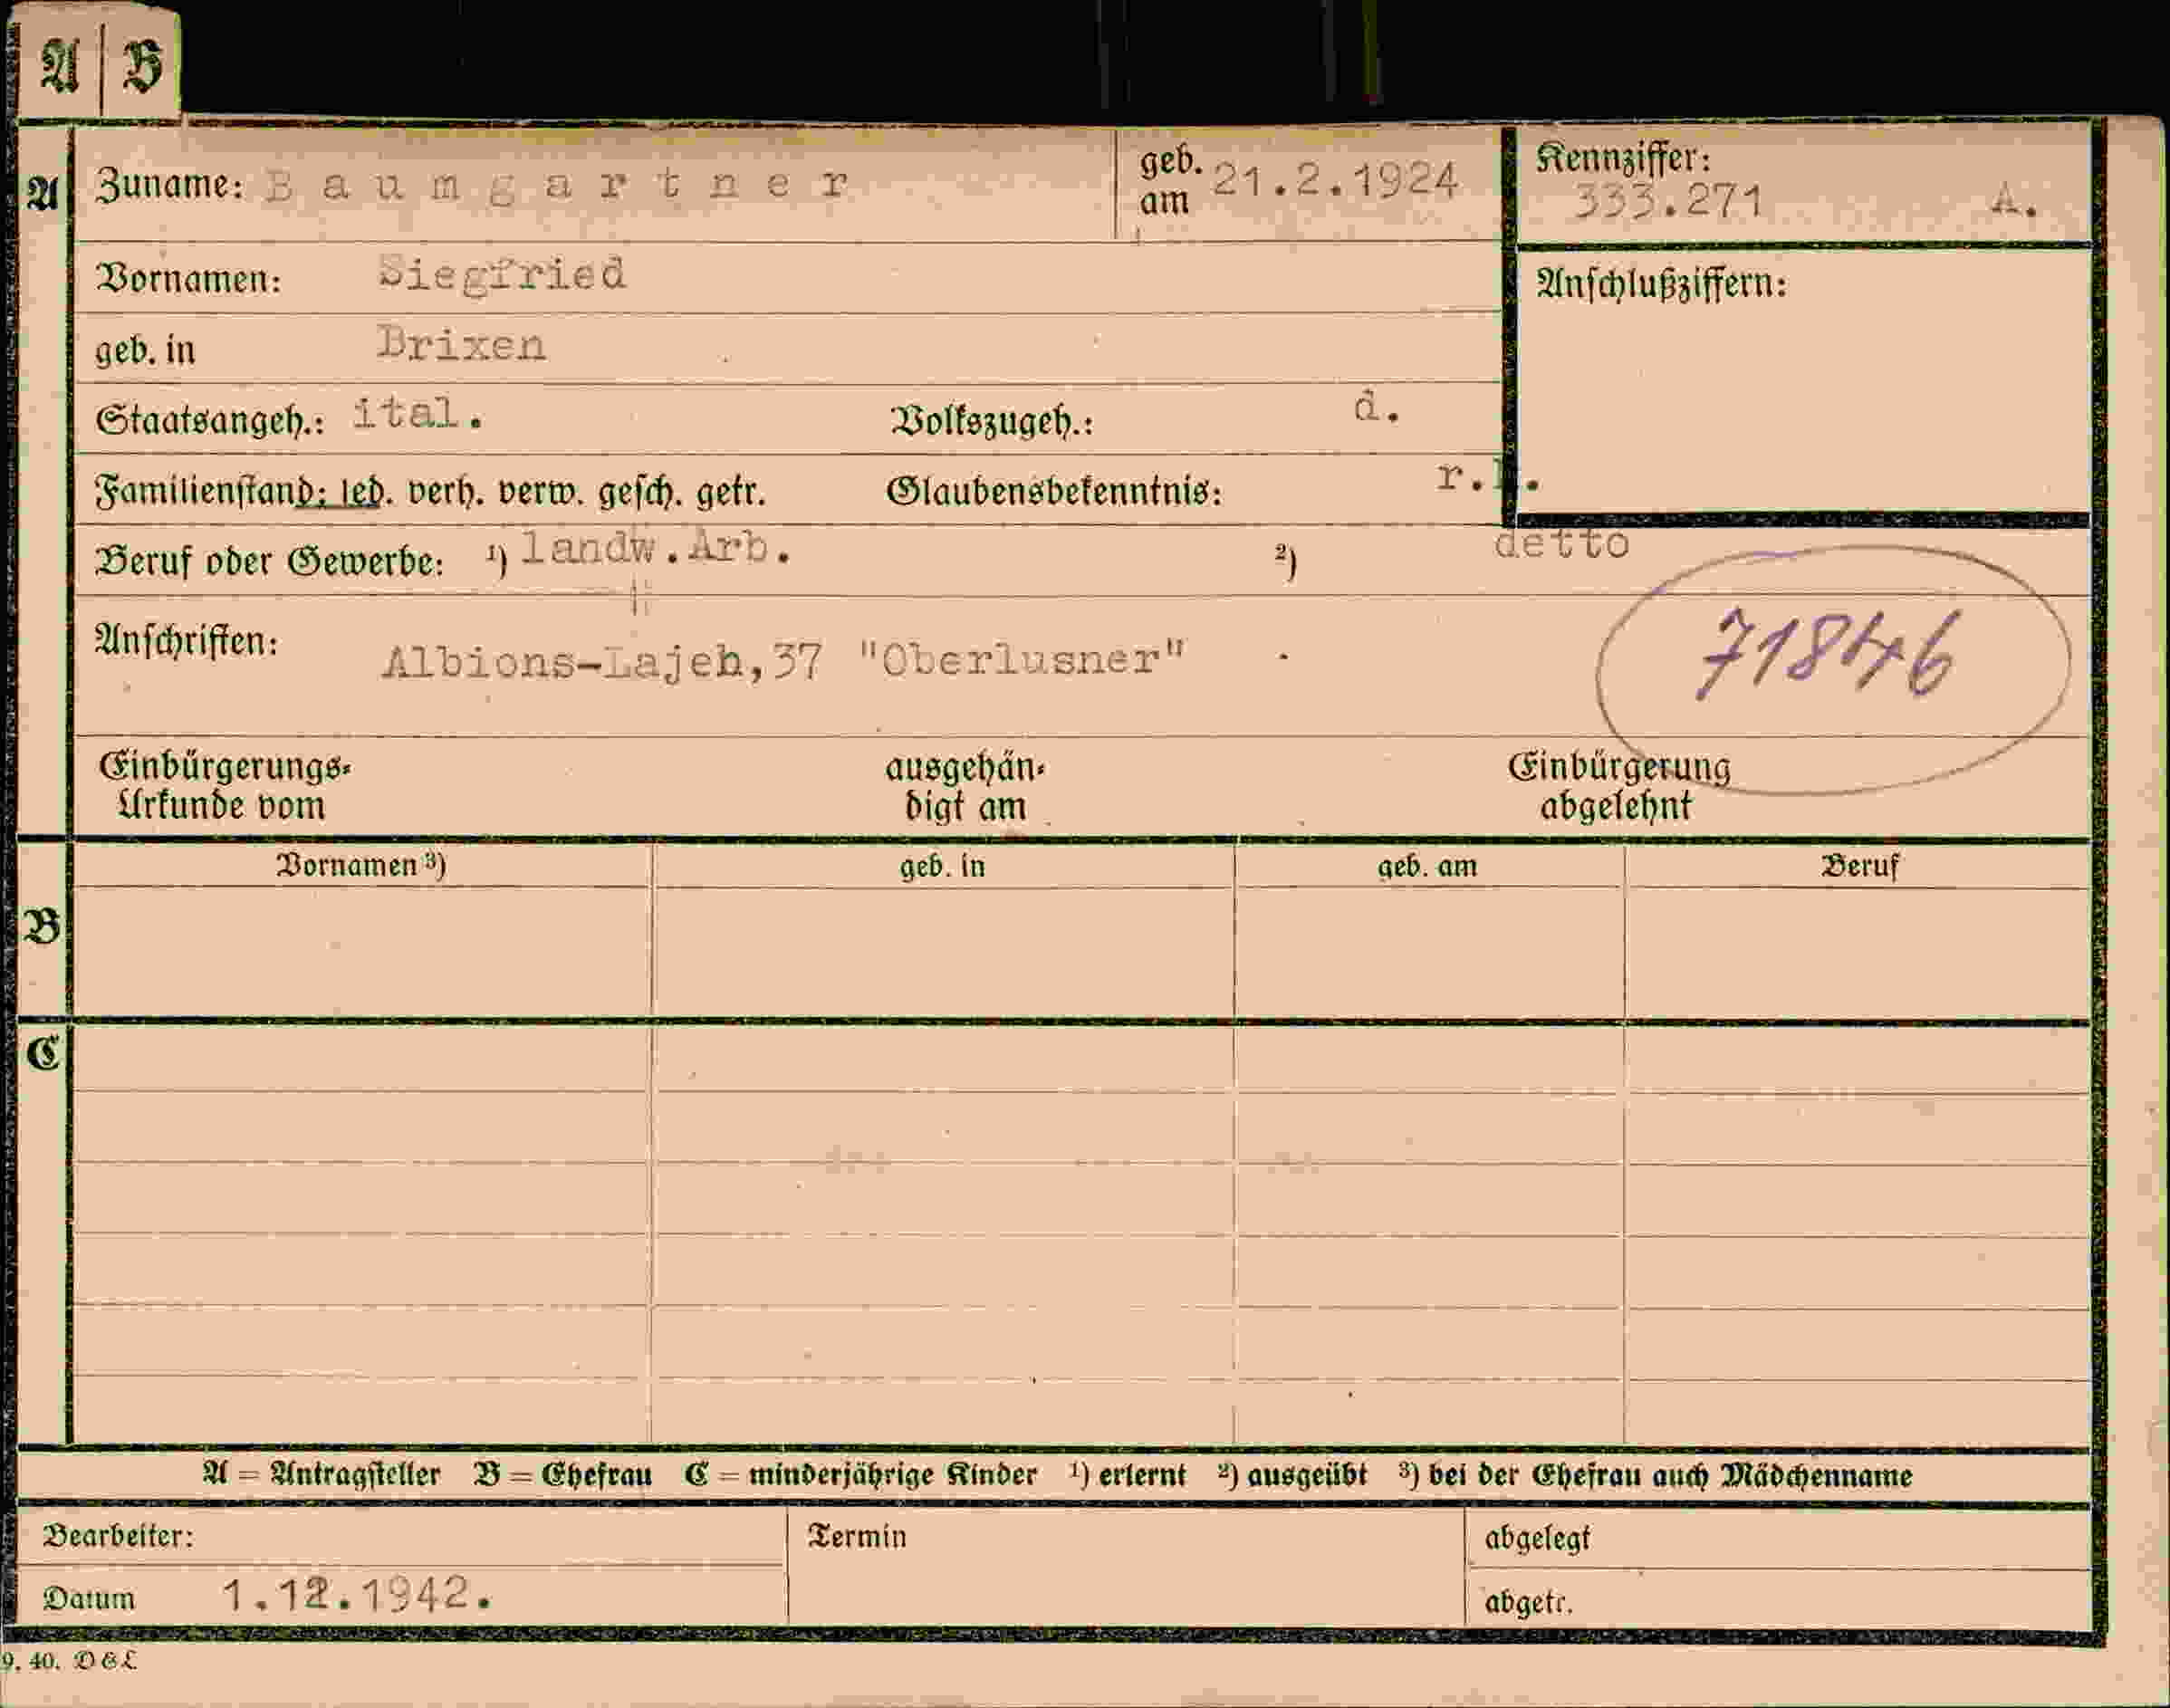 A | B
A
Zuname: Baumgartner
geb. am 21.2.1924
Kennziffer:
333.271 A.
Vornamen: Siegfried
Anschlußziffern:
geb. in Brixen
Staatsangeh.: ital. Volkszugeh.: d.
Familienstand: led. verh. verw. gesch. getr. Glaubensbekenntnis: r.k.
Beruf oder Gewerbe: ¹) landw.Arb. ²) detto
Anschriften: Albions-Lajen,37 "Oberlusner"
71846
Einbürgerungs-
Urkunde vom
ausgehän-
digt am
Einbürgerung
abgelehnt
Vornamen ³) geb. in geb. am Beruf
B
C
A = Antragsteller B = Ehefrau C = minderjährige Kinder ¹) erlernt ²) ausgeübt ³) bei der Ehefrau auch Mädchenname
Bearbeiter: Termin abgelegt
Datum 1.12.1942. abgetr.
9. 40. DGL